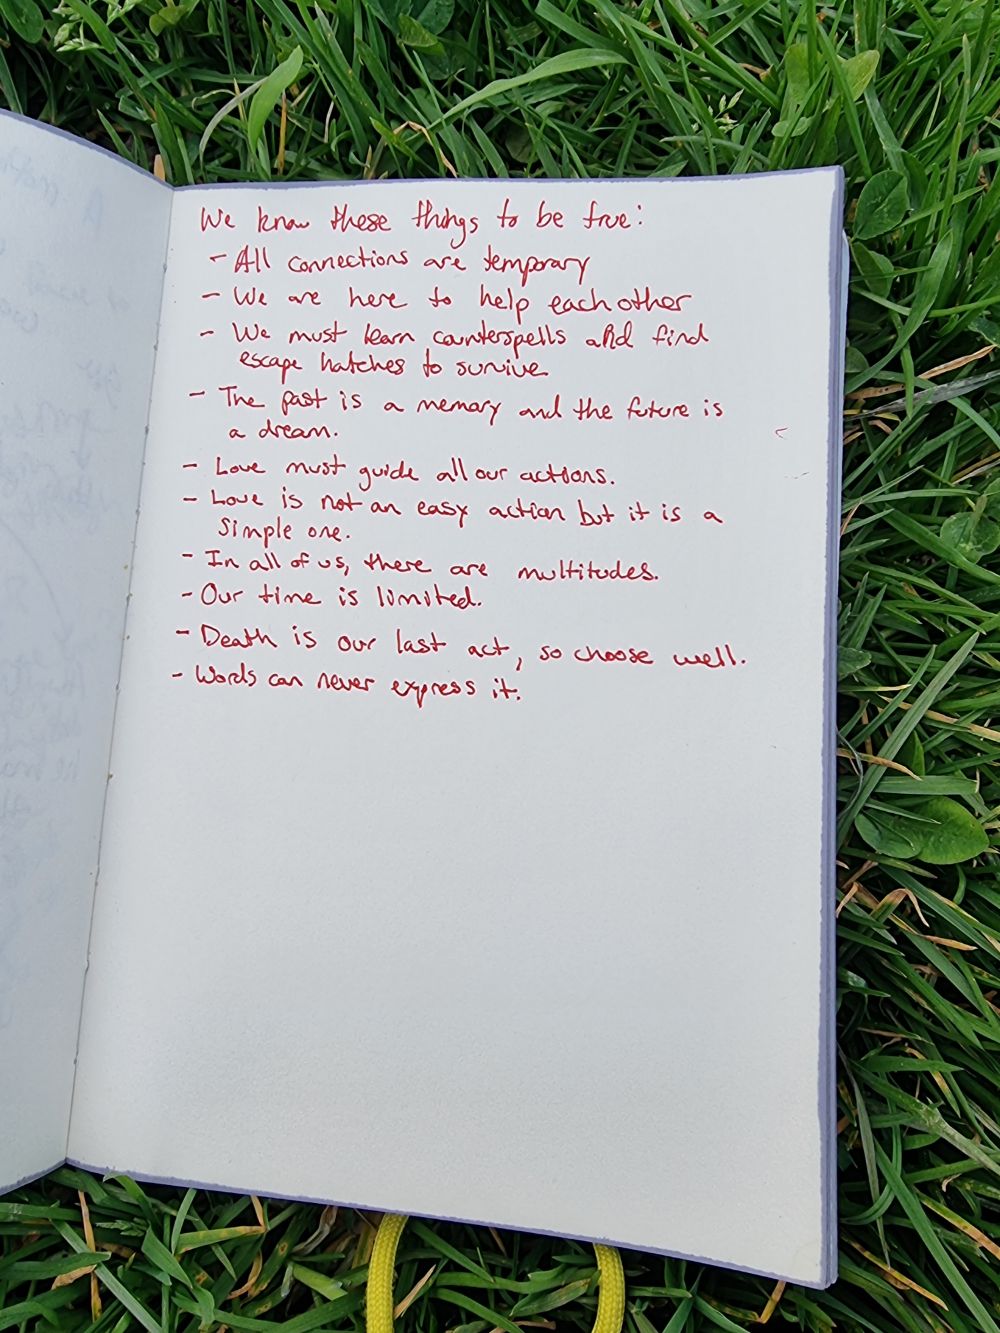 We know these things to be true:
- All connections are temporary
- We are here to help each other
- We must learn counterspells and find
escape hatches to survive
- The past is a memory and the future is
a dream.
- Love must guide all our actions.
- Love is not an easy action but it is a
simple one.
- In all of us, there are multitudes.
- Our time is limited.
- Death is our last act, so choose well.
- Words can never express it.